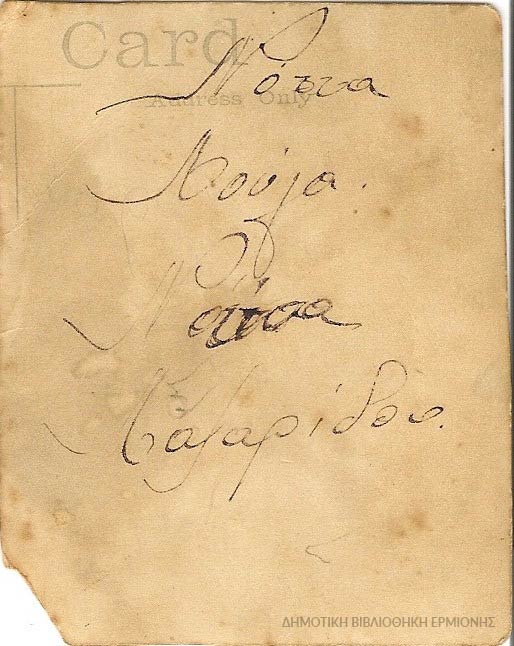 Card
Address Only
Νότσα
Κούλα.
Νότσα
Λαζαρίδου.
ΔΗΜΟΤΙΚΗ ΒΙΒΛΙΟΘΗΚΗ ΕΡΜΙΟΝΗΣ